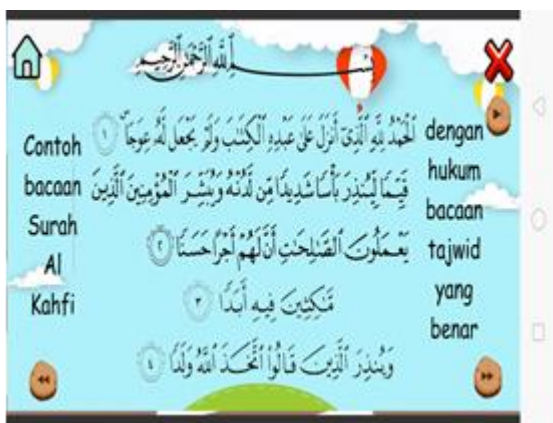 بِسْمِ اللَّهِ الرَّحْمَٰنِ الرَّحِيمِ
Contoh
bacaan
Surah
Al
Kahfi
الْحَمْدُ لِلَّهِ الَّذِي أَنزَلَ عَلَىٰ عَبْدِهِ الْكِتَٰبَ وَلَمْ يَجْعَل لَّهُ عِوَجَا ١
قَيِّمًا لِّيُنذِرَ بَأْسًا شَدِيدًا مِّن لَّدُنْهُ وَيُبَشِّرَ الْمُؤْمِنِينَ الَّذِينَ
يَعْمَلُونَ الصَّٰلِحَٰتِ أَنَّ لَهُمْ أَجْرًا حَسَنًا ٢
مَّٰكِثِينَ فِيهِ أَبَدًا ٣
وَيُنذِرَ الَّذِينَ قَالُوا اتَّخَذَ اللَّهُ وَلَدًا ٤
dengan
hukum
bacaan
tajwid
yang
benar